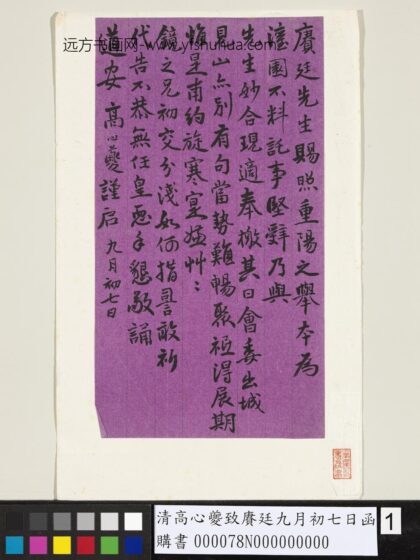 远方书画网-www.yfshuhua.com
賡廷先生賜照重陽之舉本為
澹園不料託事堅辭乃與
先生妙合現適奉檄其日會委出城
見山亦別有句當勢難暢聚祗得展期
梅星甫約旋寒
鏡之兄初交分淺如何措詈敢祈
代告不恭無任皇恧手懇敬誦
道安 高心夔謹启 九月初七日
清高心夔致賡廷九月初七日函
購書 000078N000000000
1